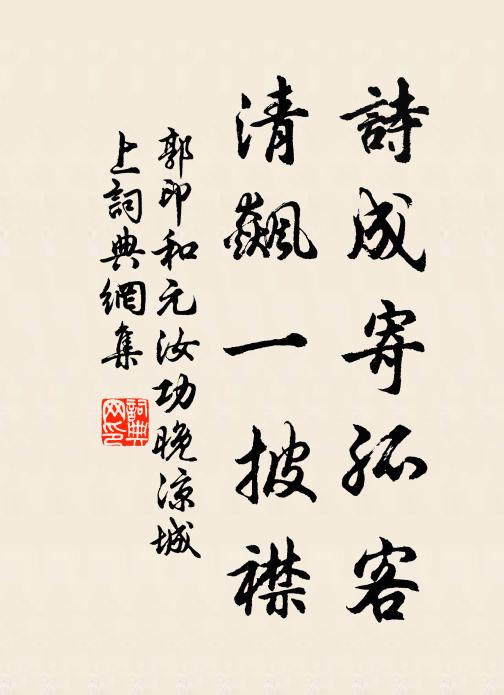 詩成寄孤客
清飆一披襟
郭印和元汝功晚凉城
上詞典網集
詞典
网印